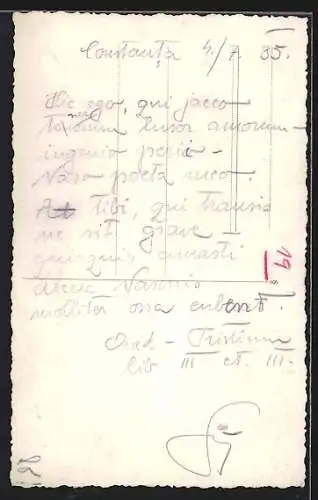 Constanța 4./7. 35.
Hic ego, qui jaceo
tenerum lusor amorum
ingenio perii -
Naso poeta meo.
At tibi, qui transis
ne sit grave
quisquis amasti
dicere Nasonis
molliter ossa cubent.
Ovid - Tristium
lib III et. III.
19